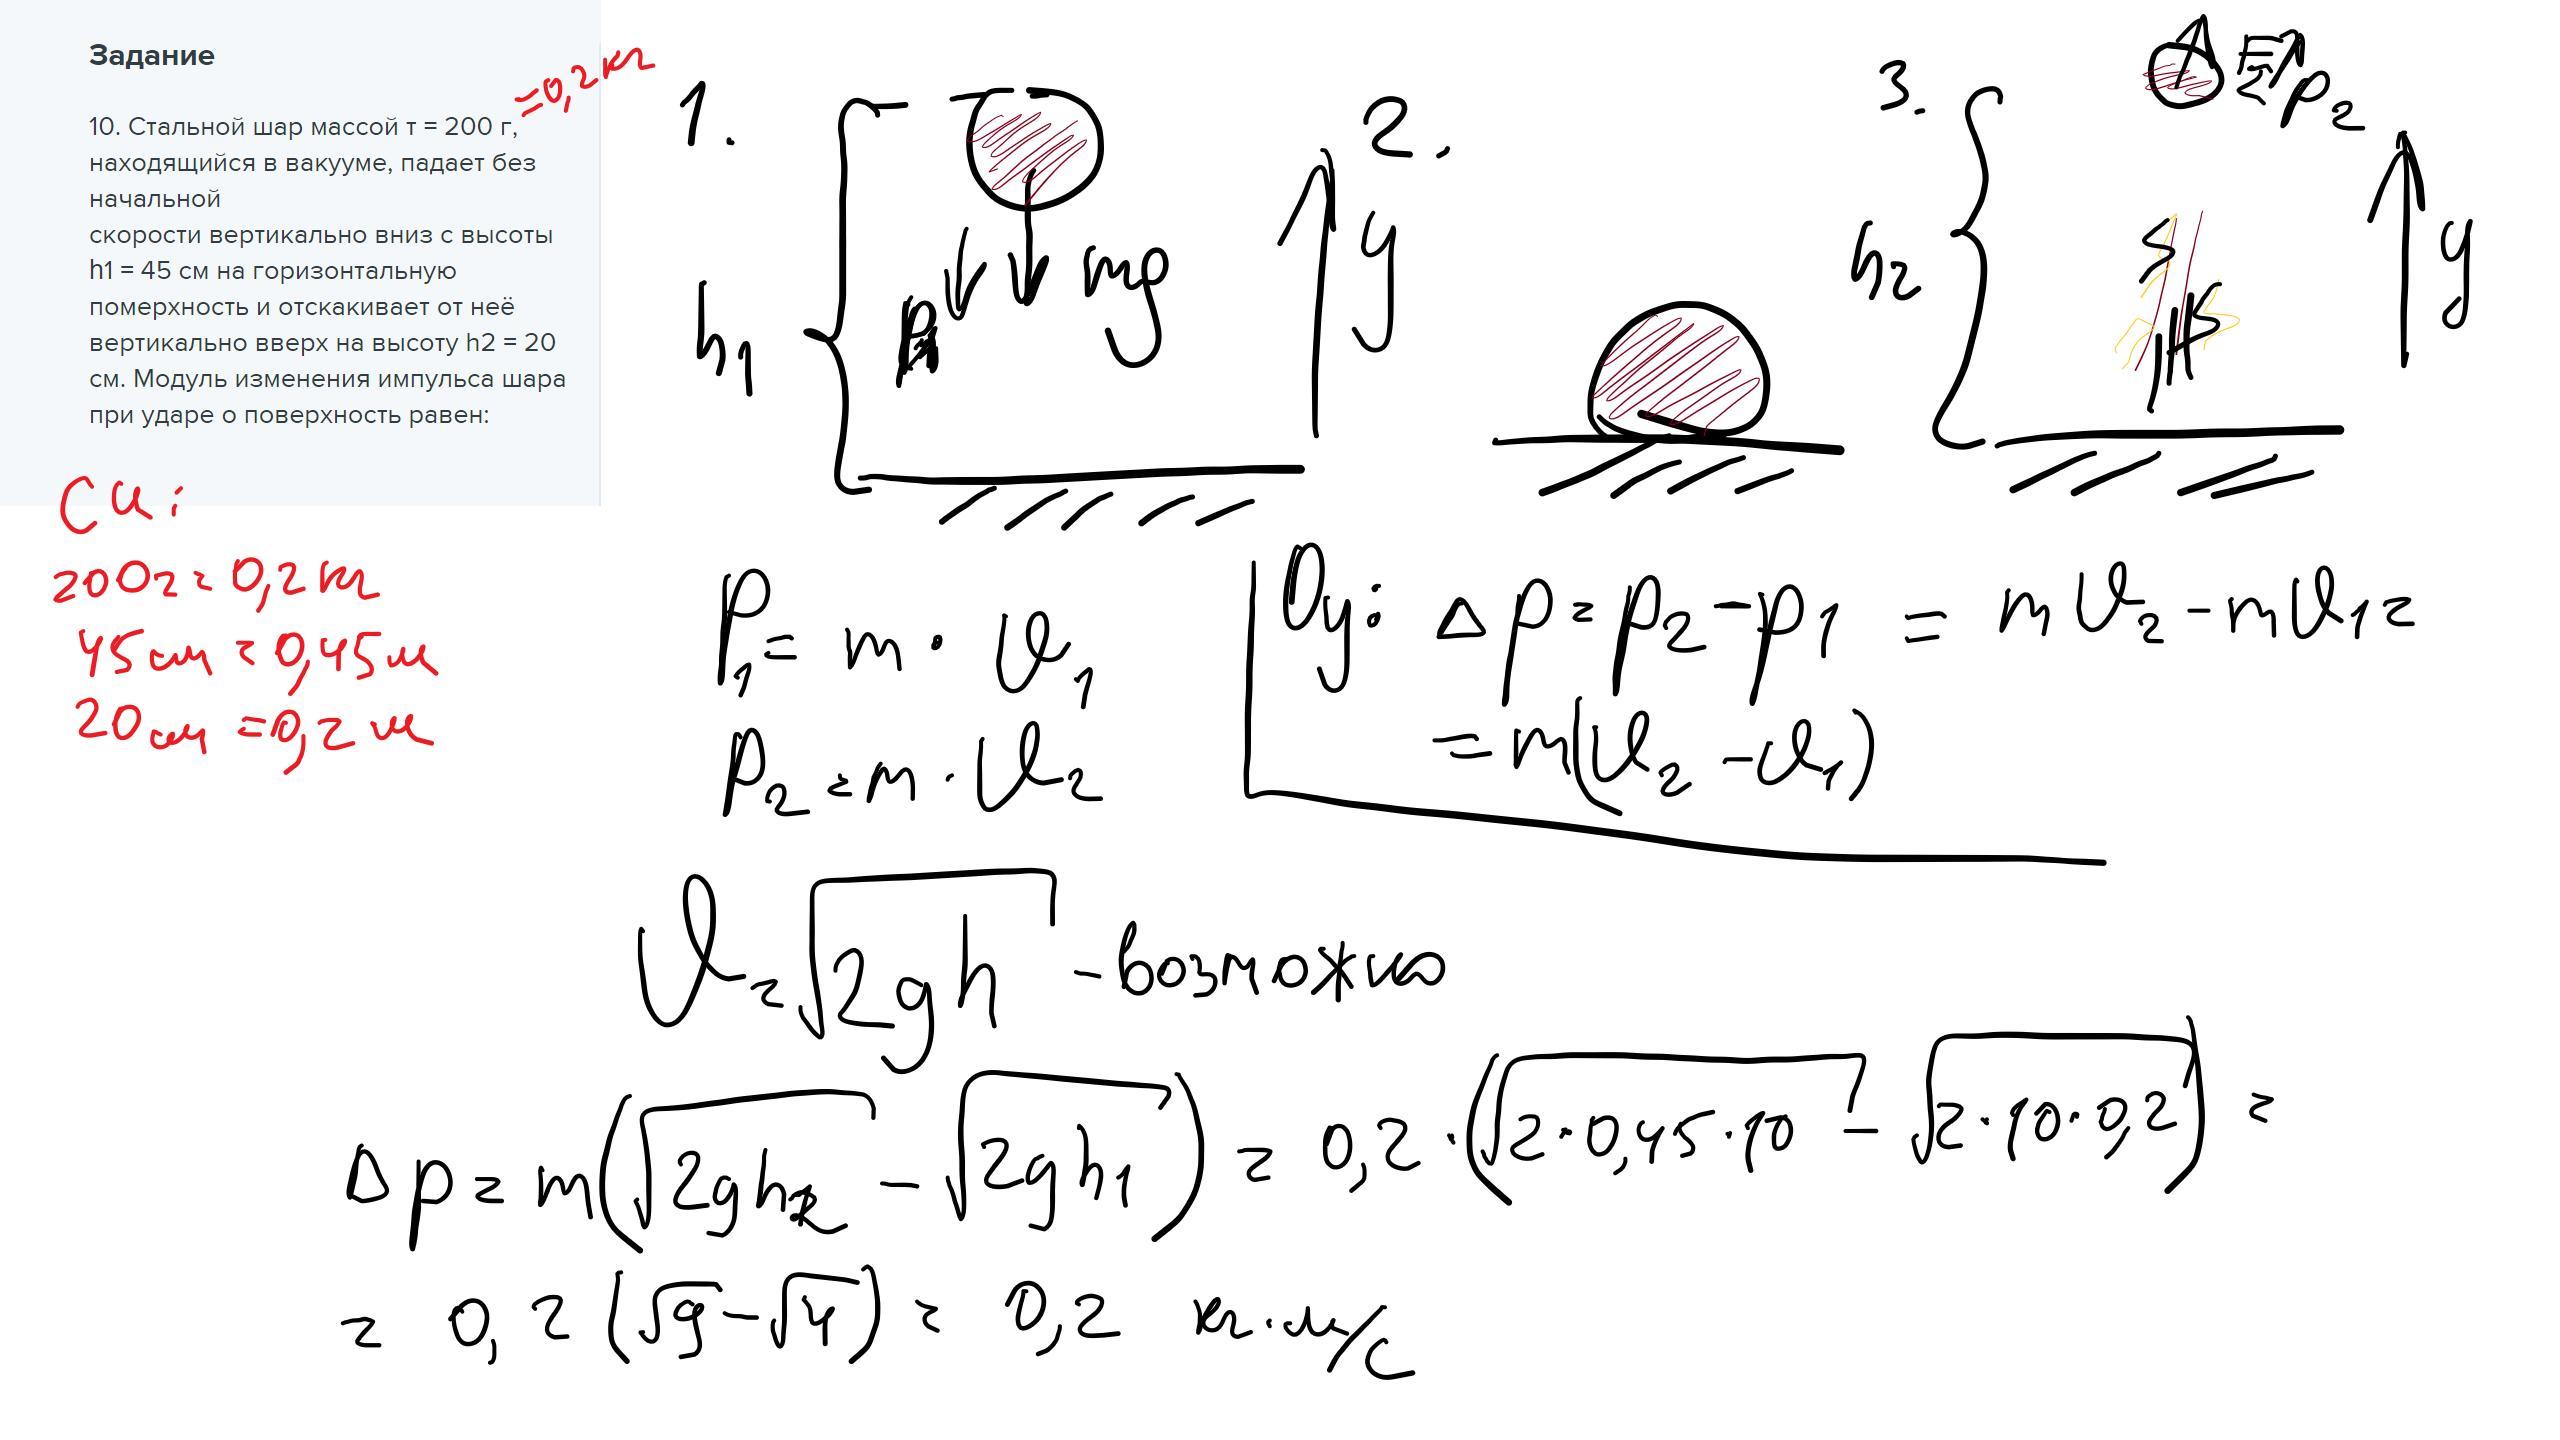 Задание
10. Стальной шар массой т = 200 г,
=0,2 кг
находящийся в вакууме, падает без
начальной
скорости вертикально вниз с высоты
h1 = 45 см на горизонтальную
померхность и отскакивает от неё
вертикально вверх на высоту h2 = 20
см. Модуль изменения импульса шара
при ударе о поверхность равен:
СИ:
200г = 0,2 кг
45см = 0,45м
20см = 0,2 м
1.
h₁
p
mg
y
2.
3.
h₂
p₂
y
p₁ = m · υ₁
p₂ = m · υ₂
Oy: Δp = p₂ - p₁ = mυ₂ - mυ₁ =
= m(υ₂ - υ₁)
υ = √2gh - возможно
Δp = m(√2gh₂ - √2gh₁) = 0,2 · (√2·0,45·10 - √2·10·0,2) =
= 0,2 (√9 - √4) = 0,2 кг·м/с